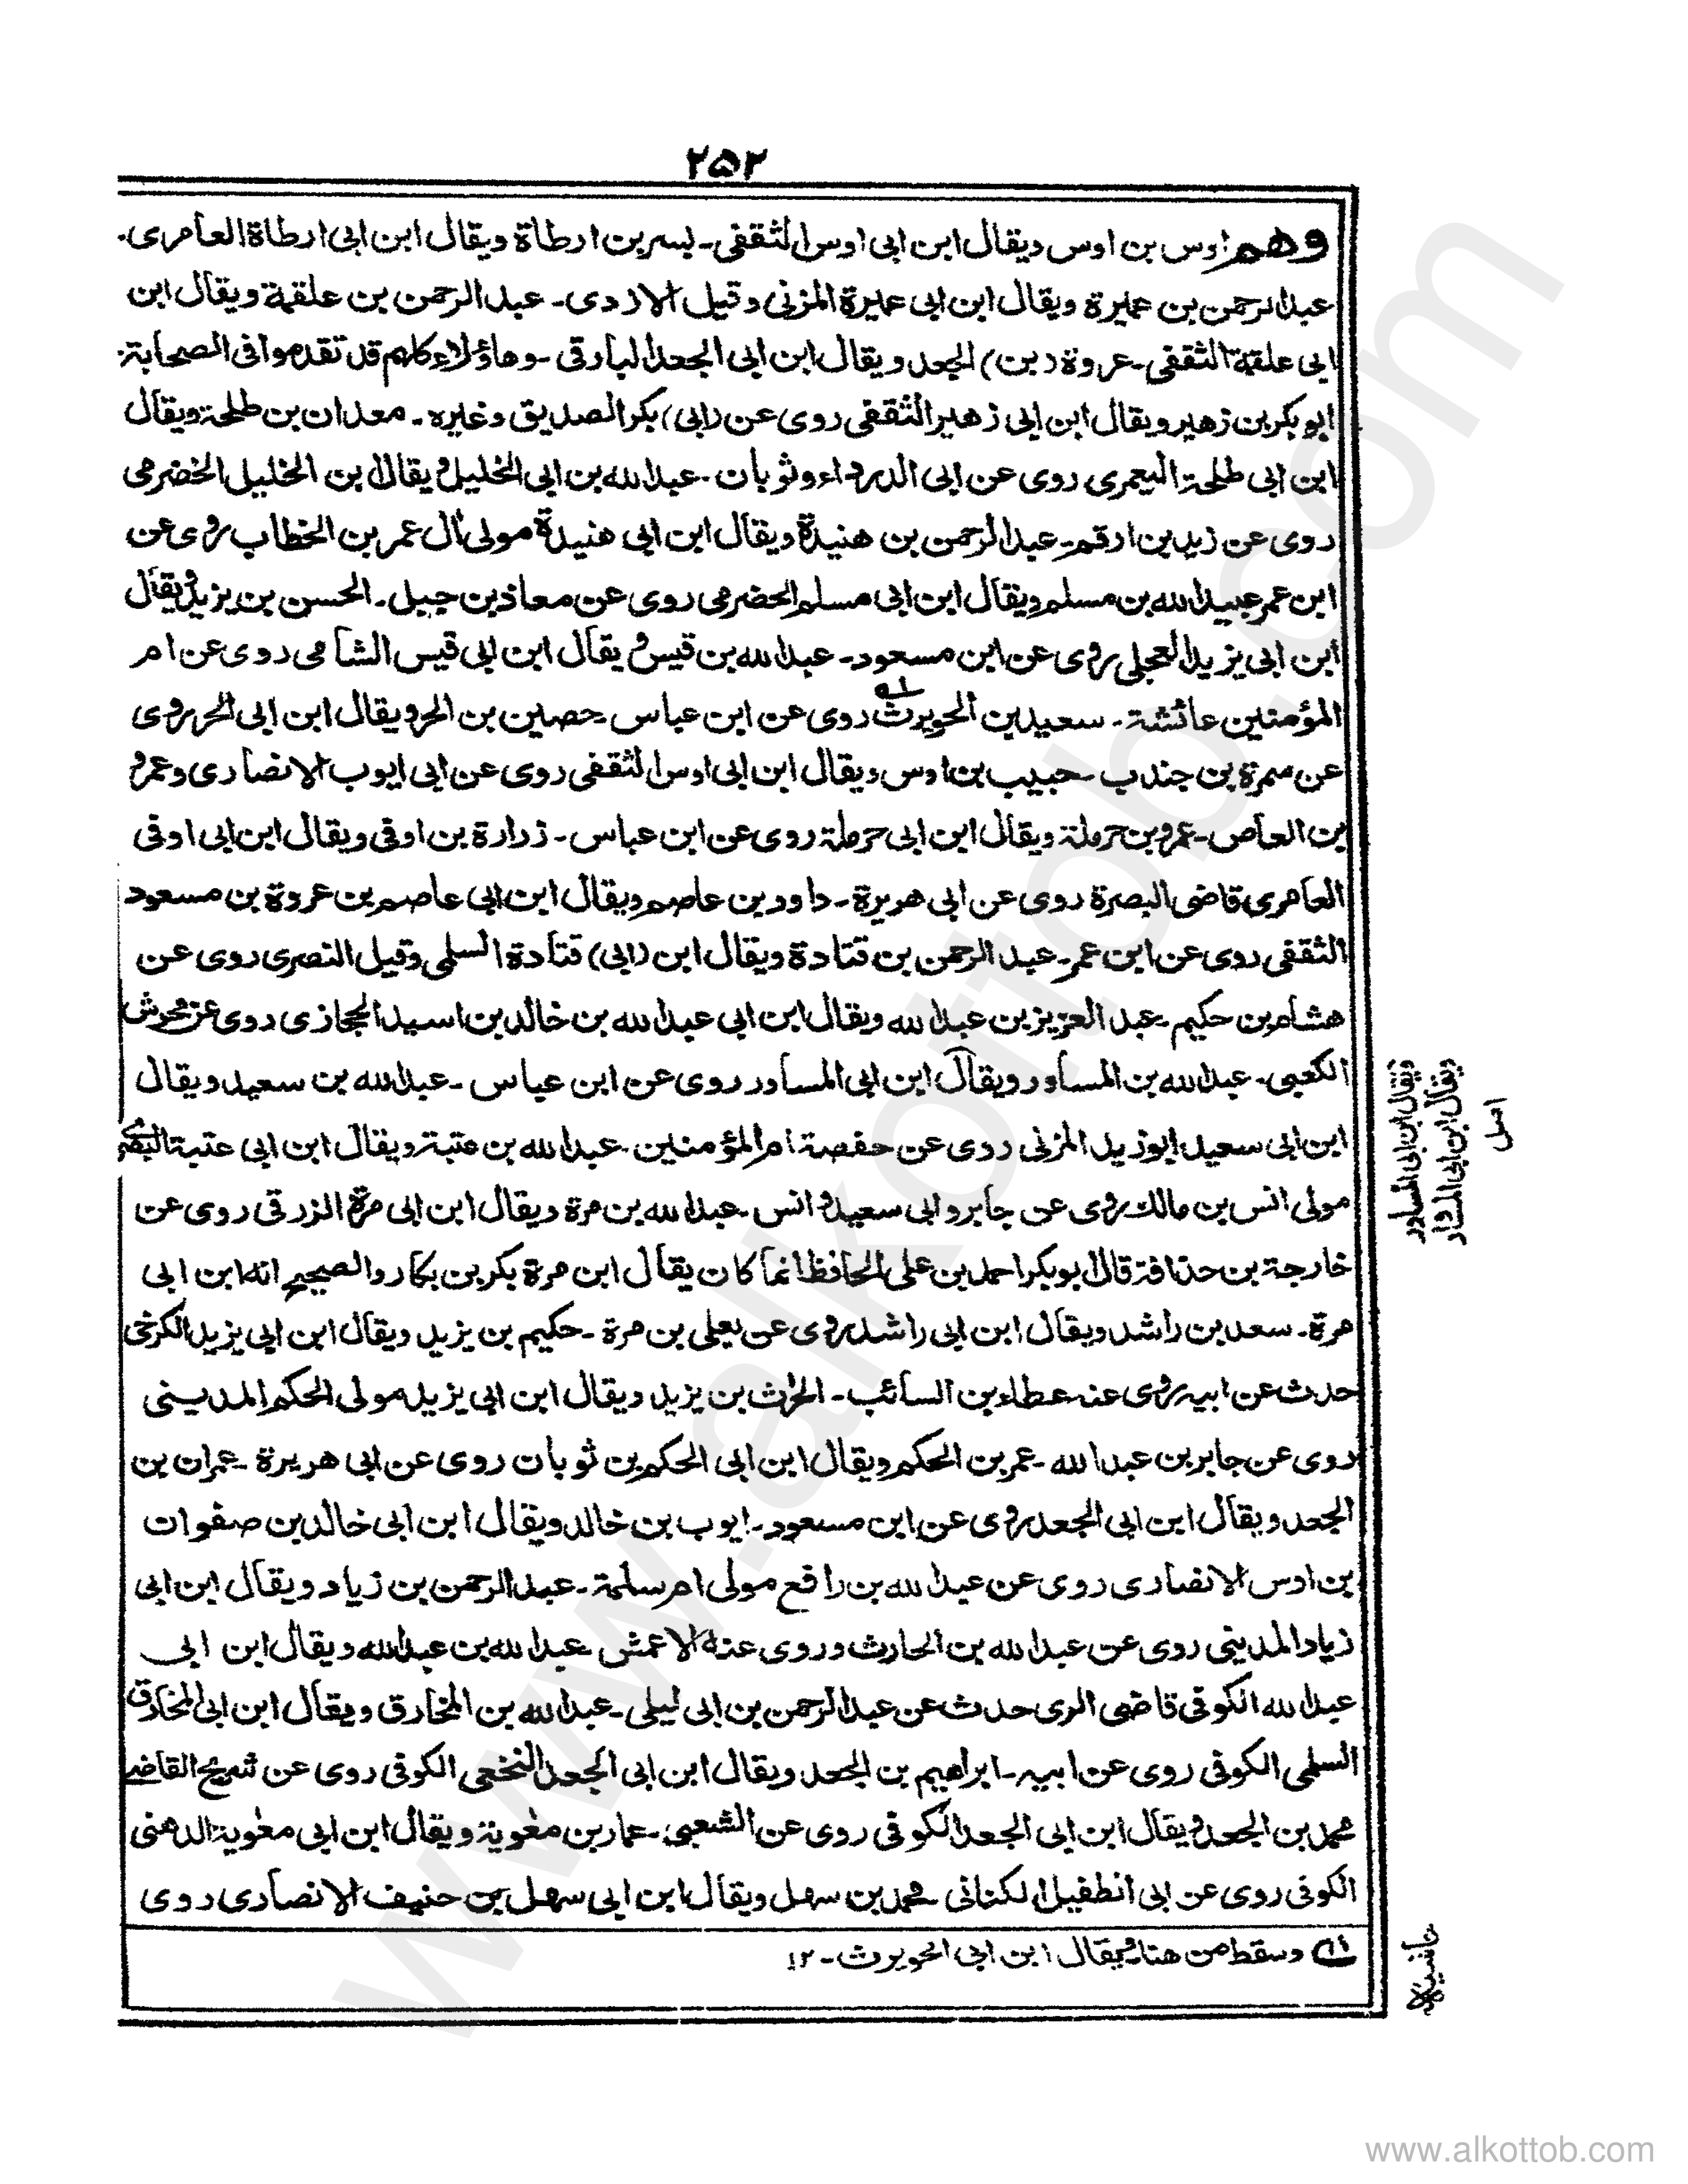 ٢٥٢
وهم اوس بن اوس ويقال ابن ابى اوس الثقفى ـ بسر بن ارطاة ويقال ابن ابى ارطاة العامرى ـ
عبد الرحمن بن عميرة ويقال ابن ابى عميرة المزنى وقيل الازدى ـ عبد الرحمن بن علقمة ويقال ابن
ابى علقمة الثقفى ـ عروة (بن) الجعد ويقال ابن ابى الجعد البارقى ـ وهاؤلاء كلهم قد تقدموا فى الصحابة ـ
ابو بكر بن زهير ويقال ابن ابى زهير الثقفى روى عن (ابى) بكر الصديق وغيره ـ معدان بن طلحة ويقال
ابن ابى طلحة اليعمرى روى عن ابى الدرداء وثوبان ـ عبد الله بن ابى الخليل ويقال بن الخليل الخضرمى
روى عن زيد بن ارقم ـ عبد الرحمن بن هنيدة ويقال ابن ابى هنيدة مولى آل عمر بن الخطاب روى عن
ابن عمر عبيد الله بن مسلم ويقال ابن ابى مسلم الحضرمى روى عن معاذ بن جبل ـ الحسن بن يزيد ويقال
ابن ابى يزيد العجلى روى عن ابن مسعود ـ عبد الله بن قيس ويقال ابن ابى قيس الشامى روى عن ام
المؤمنين عائشة ـ سعيد بن الحويرث ١ه روى عن ابن عباس ـ حصين بن الحر ويقال ابن ابى الحر روى
عن سمرة بن جندب ـ حبيب بن اوس ويقال ابن ابى اوس الثقفى روى عن ابى ايوب الانصارى وعمرو
بن العاص ـ عمرو بن حرملة ويقال ابن ابى حرملة روى عن ابن عباس ـ زرارة بن اوفى ويقال ابن ابى اوفى
العامرى قاضى البصرة روى عن ابى هريرة ـ داود بن عاصم ويقال ابن ابى عاصم بن عروة بن مسعود
الثقفى روى عن ابن عمر ـ عبد الرحمن بن قتادة ويقال ابن (ابى) قتادة السلمى وقيل النصرى روى عن
هشام بن حكيم ـ عبد العزيز بن عبد الله ويقال ابن ابى عبد الله بن خالد بن اسيد الحجازى روى عن محرش
الكعبى ـ عبد الله بن المساور ويقال ابن ابى المساور روى عن ابن عباس ـ عبد الله بن سعيد ويقال
ابن ابى سعيد ابو زيد المزنى روى عن حفصة ام المؤمنين ـ عبد الله بن عتبة ويقال ابن ابى عتبة البصرى
مولى انس بن مالك روى عن جابر وابى سعيد وانس ـ عبد الله بن مرة ويقال ابن ابى مرة الزرقى روى عن
خارجة بن حذافة قال ابو بكر احمد بن على الحافظ انما كان يقال ابن مرة بكر بن بكار والصحيح انه ابن ابى
مرة ـ سعد بن راشد ويقال ابن ابى راشد روى عن يعلى بن مرة ـ حكيم بن يزيد ويقال ابن ابى يزيد الكرخى
حدث عن ابيه روى عنه عطاء بن السائب ـ الحرث بن يزيد ويقال ابن ابى يزيد مولى الحكم المدينى
روى عن جابر بن عبد الله ـ عمر بن الحكم ويقال ابن ابى الحكم بن ثوبان روى عن ابى هريرة ـ عمران بن
الجعد ويقال ابن ابى الجعد روى عن ابن مسعود ـ ايوب بن خالد ويقال ابن ابى خالد بن صفوان
بن اوس الانصارى روى عن عبد الله بن رافع مولى ام سلمة ـ عبد الرحمن بن زياد ويقال ابن ابى
زياد المدينى روى عن عبد الله بن الحارث وروى عنه الاعمش عبد الله بن عبد الله ويقال ابن ابى
عبد الله الكوفى قاضى الرى حدث عن عبد الرحمن بن ابى ليلى ـ عبد الله بن المخارق ويقال ابن ابى المخارق
السلمى الكوفى روى عن ابيه ـ ابراهيم بن الجعد ويقال ابن ابى الجعد النخعى الكوفى روى عن شريح القاضى
محمد بن الجعد ويقال ابن ابى الجعد الكوفى روى عن الشعبى ـ عمار بن معٰوية ويقال ابن ابى معٰوية الدهنى
الكوفى روى عن ابى الطفيل الكنانى ـ محمد بن سهل ويقال ابن ابى سهل بن حنيف الانصارى روى
(١) وسقط من هنا ويقال ابن ابى الحويرث ـ ١٢
ويقال ابن ابى المساور
ويقال ابن ابى المساروا
اصل
www.alkottob.com
www.alkottob.com